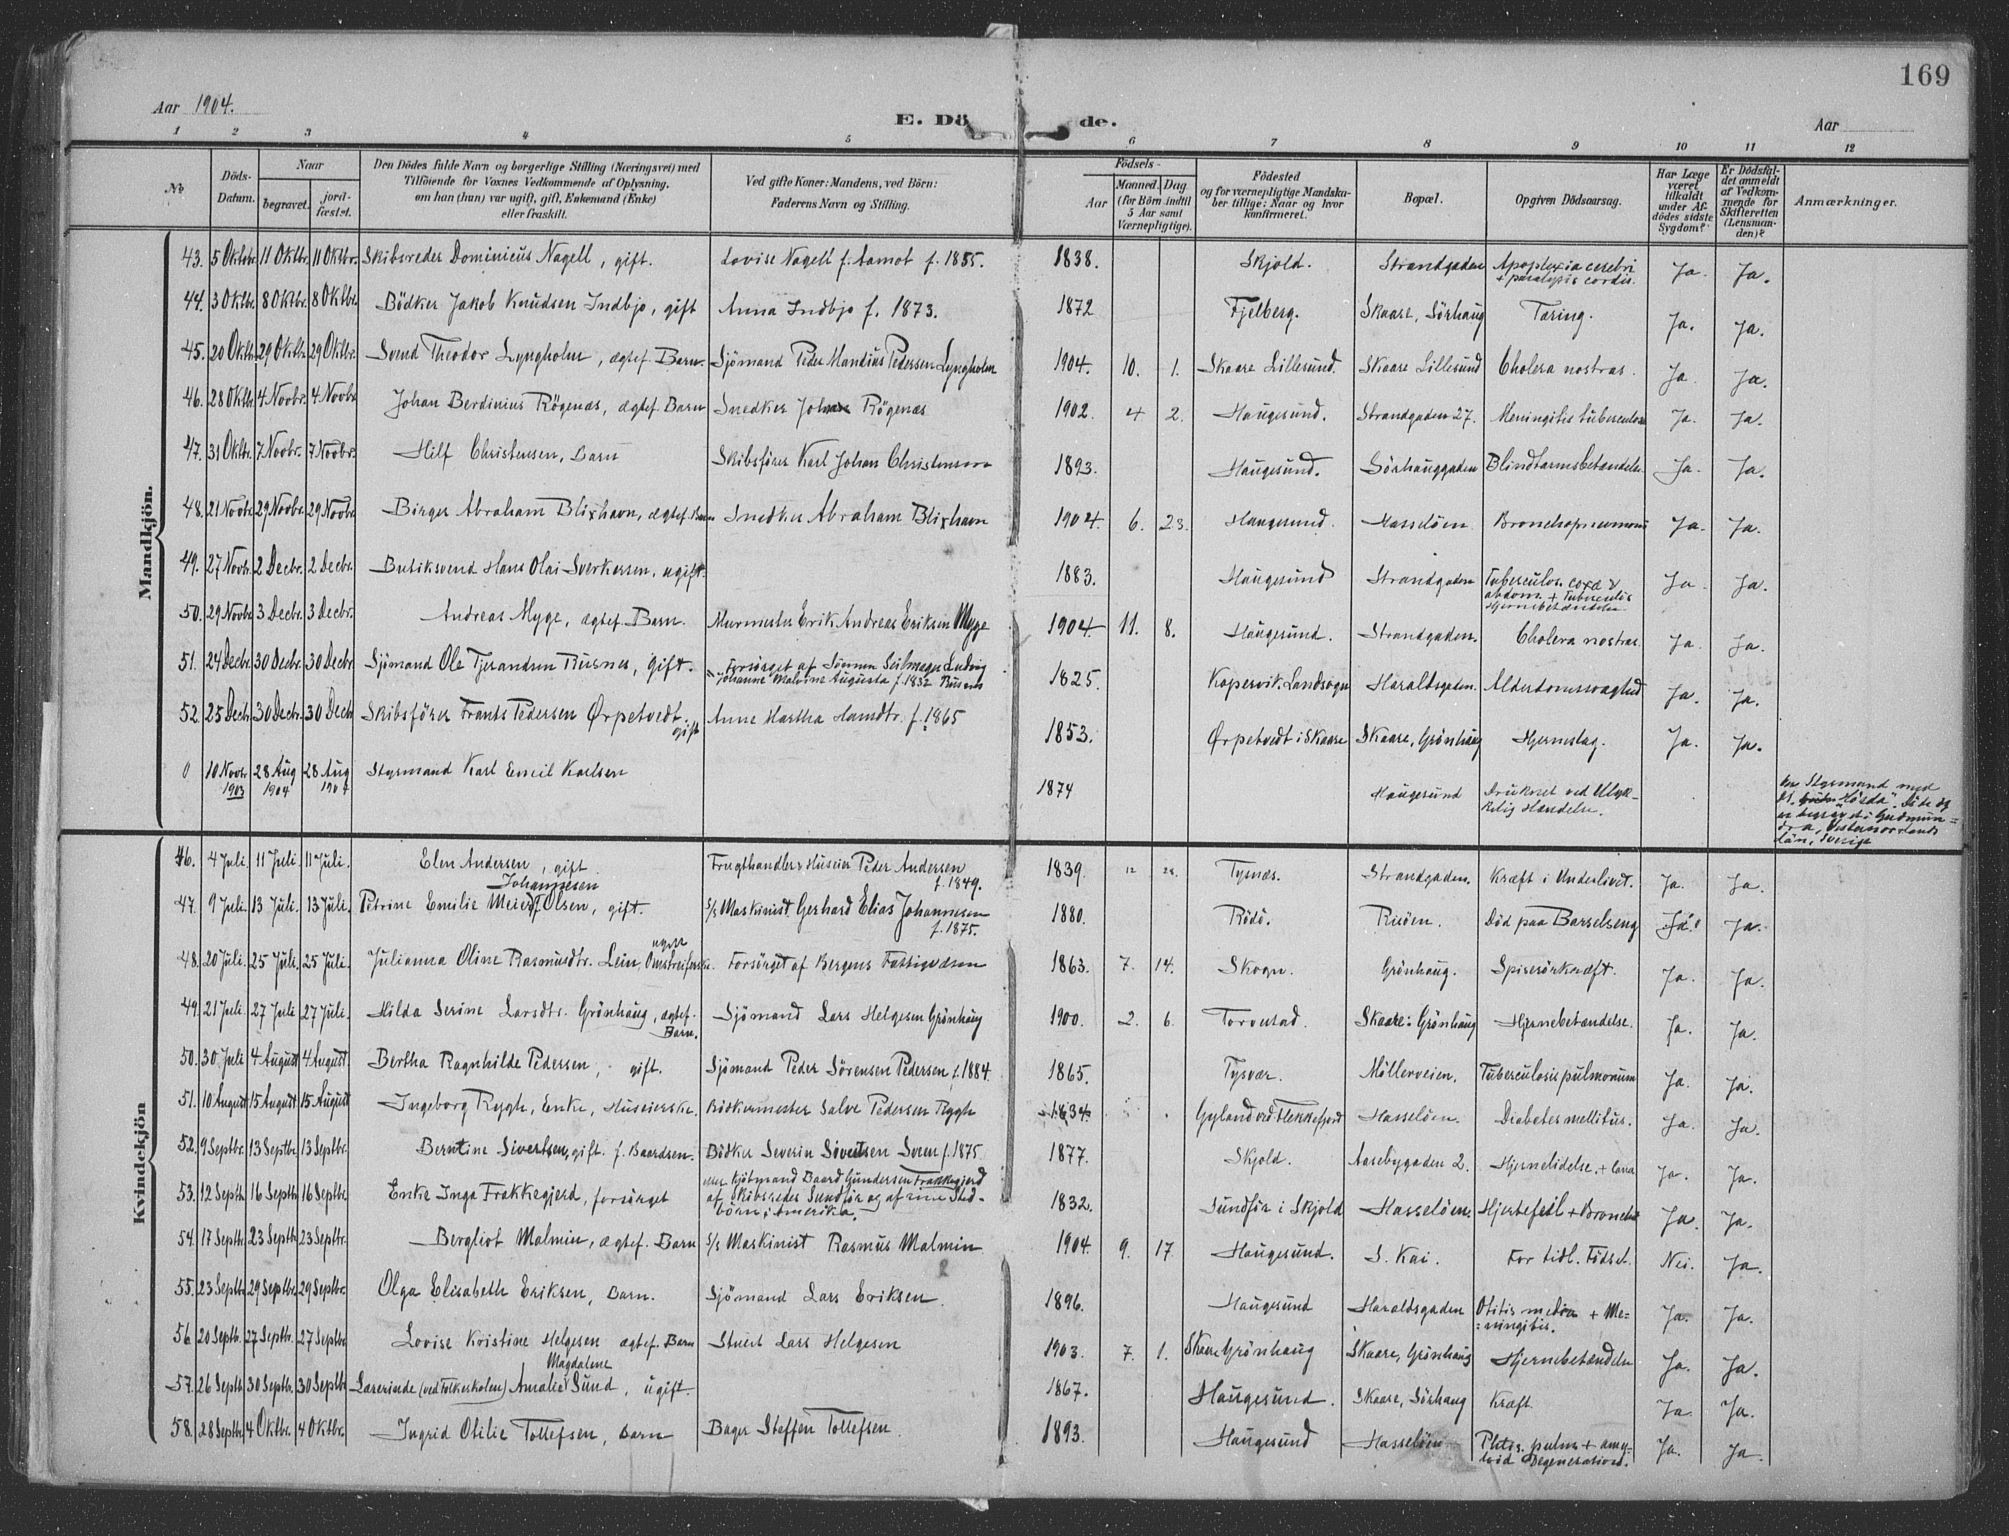 169
Aar 1904.
E. Dö de.
Aar
1 2 3 4 5 6 7 8 9 10 11 12
No
Döds-Datum.
Naar
begravet.
jord-fæstet.
Den Dödes fulde Navn og borgerlige Stilling (Næringsvei) med
Tilföiende for Voxnes Vedkommende af Oplysning,
om han (hun) var ugift, gift, Enkemand (Enke)
eller fraskilt.
Ved gifte Koner: Mandens, ved Börn:
Faderens Navn og Stilling.
Födsels-
Aar
Maaned. Dag
(for Börn indtil
5 Aar samt
Værnepligtige).
Födested
og for værnepligtige Mandska-
ber tillige: Naar og hvor
konfirmeret.
Bopæl.
Opgiven Dödsaarsag.
Har Læge
været
tilkaldt
under Af-
dödes sidste
Sygdom?
Er Dödsfal-
det anmeldt
af Vedkom-
mende for
Skifteretten
(Lensman-
den)?
Anmærkninger.
Mandkjön.
43. 5 Oktbr. 11 Oktbr. 11 Oktbr. Skibsreder Dominicus Nagell, gift. Lovise Nagell f. Aamot f. 1855. 1838. Skjold. Strandgaden Apoplexia cerebri + paralysis cordis. Ja. Ja.
44. 3 Oktbr. 8 Oktbr. 8 Oktbr. Bödker Jakob Knudsen Indbjo, gift Anna Indbjo f. 1873. 1872 Fjelberg. Skaare, Sörhaug Tæring. Ja. Ja.
45. 20 Oktbr. 29 Oktbr. 29 Oktbr. Svend Theodor Lyngholm, ægtef. Barn. Sjömand Peder Mandius Pedersen Lyngholm 1904. 10. 1. Skaare Lillesund. Skaare Lillesund Cholera nostras. Ja. Ja.
46. 28 Oktbr 4 Novbr. 4 Novbr Johan Berdinius Røgenæs, ægtef. Barn Snedker Røgenæs 1902. 4 2. Haugesund. Strandgaden 27. Meningitis tuberculosa Ja. Ja.
47. 31 Oktbr. 7 Novbr. 7 Novbr. Hilf Christensen, Barn Skibsfører Karl Johan Christensen 1893. Haugesund. Sörhauggaden Blindtarmsbetændelse. Ja. Ja.
48. 21 Novbr. 29 Novbr. 29 Novbr Birger Abraham Blixhavn, ægtef. Barn Snedker Abraham Blixhavn 1904. 6. 23. Haugesund. Hasselöen. Bronchopneumoni Ja. Ja.
49. 27 Novbr. 2 Decbr. 2 Decbr. Butiksvend Hans Olai Sverkersen, ugift. 1883. Haugesund Strandgaden Tuberculos. coxæ & abdom. + Tuberculös Hjernebetændelse. Ja. Ja.
50. 29 Novbr 3 Decbr. 3 Decbr. Andreas Myge, ægtef. Barn. Murmester Erik Andreas Eriksen Myge 1904 11. 8. Haugesund. Strandgaden. Cholera nostras Ja. Ja.
51. 24 Decbr. 30 Decbr. 30 Decbr. Sjömand Ole Tjerandsen Rusnes, gift. Forsørget af Sønnen Seilmager Ludvig Johanne Malvine Augusta f. 1832 1825. Kopervik Landsogn Haraldsgaden. Alderdomssvaghed Ja. Ja.
52. 25 Decbr 30 Decbr. 30 Decbr Skibsfører Frants Pedersen Ørpetvedt. gift Anne Martha f. 1865 1853. Ørpetvedt i Skaare Skaare, Grönhaug Hjerneslag. Ja. Ja.
0 10 Novbr. 1903 28 Aug 1904 28 Aug 1904 Styrmand Karl Emil Karlsen 1874 Haugesund Druknet ved Ulyk-
kelig Hændelse.
Styrmand med
"Hörda". Döde og
er begravet i Gudmun-
dra, Vesternorrlands
län, Sverige
Kvindekjön
46. 4 Juli. 11 Juli. 11 Juli. Elen Andersen, gift. Frugthandler & Huseier Peder Andersen f. 1849. 1839. 12 28. Tysnæs. Strandgaden. Kræft i Underlivet. Ja. Ja.
47. 9 Juli. 13 Juli. 13 Juli. Petrine Emilie Meier Johannesen f. Olsen, gift. S/s Maskinist Gerhard Elias Johannesen f. 1875. 1880. Rödö. Risöen. Död paa Barselseng Ja. Ja.
48. 20 Juli. 25 Juli. 25 Juli. Julianna Oline Rasmusdtr. Lein, ugift Omstreiferske. Forsörget af Bergens Fattigvæsen 1863. 7. 14. Skogn. Grönhaug. Spiserörkræft. Ja. Ja.
49. 21 Juli. 27 Juli 27 Juli. Hilda Serine Larsdtr. Grönhaug, ægtef. Barn. Sjömand Lars Helgesen Grönhaug 1900. 2. 6. Torvestad. Skaare: Grönhaug Hjernebetændelse. Ja. Ja.
50. 30 Juli 4 August 4 August. Bertha Ragnhilde Pedersen, gift. Sjömand Peder Sörensen Pedersen f. 1884. 1865. Tysvær. Möllerveien. Tuberculosis pulmonum Ja. Ja.
51. 10 August 15 August 15 August Ingeborg Rygh, Enke, Huseierske. Bödkermester Salve Pedersen Rygh 1834 Gyland ved Flekkefjord Hasselöen. Diabetes mellitus. Ja. Ja.
52. 9 Septbr. 13 Septbr 13 Septbr. Berntine Sivertsen, gift. f. Baardsen. Bödker Severin Sivertsen f. 1875. 1877. Skjold. Aasebygaden 2. Hjernelidelse. Ja. Ja.
53. 12 Septbr 16 Septbr 16 Septbr. Enke Inga Frakkegjerd, forsörget Kjöbmand Baard Gundersen Frakkegjerd
af Skibsreder Sundför og af sine Sted-
börn i Amerika. 1832. Sundför i Skjold Hasselöen. Hjertefeil + Bronchit Ja. Ja.
54. 17 Septbr 23 Septbr 23 Septbr. Bergliot Malmin, ægtef. Barn S/s Maskinist Rasmus Malmin 1904. 9. 17. Haugesund. S. Kai. For tidl. Födsel. Nei. Ja.
55. 23 Septbr 29 Septbr. 29 Septbr. Olga Elisabeth Eriksen, Barn. Sjömand Lars Eriksen. 1896. Haugesund Haraldsgaden Otitis media + Me-
ningitis. Ja. Ja.
56 20 Septbr. 27 Septbr. 27 Septbr Lovise Kristine Helgesen ægtef. Barn Stuert Lars Helgesen 1903. 7. 1. Skaare Grönhaug Skaare, Grönhaug Hjernebetændelse Ja. Ja.
57. 26 Septbr 30 Septbr. 30 Septbr Lærerinde (ved Folkeskolen) Amalie Magdalene Sund, ugift. 1867. Haugesund. Skaare, Sörhaug Kræft. Ja. Ja.
58. 28 Septbr 4 Oktbr. 4 Oktbr. Ingrid Otilie Tollefsen, Barn Bager Steffen Tollefsen. 1893. Haugesund Hasselöen Phtis. pulm + amy-
loid Degeneration. Ja. Ja.